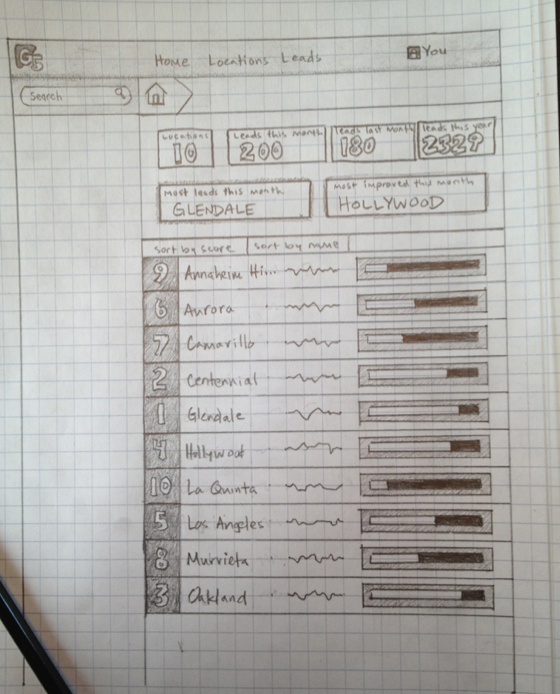 G5
Home Locations Leads You
Search
Locations
10
Leads this month
200
leads last month
180
leads this year
2329
most leads this month
GLENDALE
most improved this month
HOLLYWOOD
sort by score sort by name
9 Annaheim Hi...
6 Aurora
7 Camarillo
2 Centennial
1 Glendale
4 Hollywood
10 La Quinta
5 Los Angeles
8 Murrieta
3 Oakland